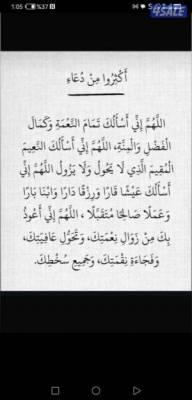 1:05
%37
4SALE
أَكْثِرُوا مِنْ دُعَاءِ
اللَّهُمَّ إِنِّي أَسْأَلُكَ تَمَامَ النِّعْمَةِ وَكَمَالَ
الْفَضْلِ وَالْمِنَّةِ، اللَّهُمَّ إِنِّي أَسْأَلُكَ النَّعِيمَ
الْمُقِيمَ الَّذِي لَا يَحُولُ وَلَا يَزُولُ اللَّهُمَّ إِنِّي
أَسْأَلُكَ عَيْشًا قَارًا وَرِزْقًا دَارًا وَابْنَا بَارًا
وَعَمَلًا صَالِحًا مُتَقَبَّلًا ، اللَّهُمَّ إِنِّي أَعُوذُ
بِكَ مِنْ زَوَالِ نِعْمَتِكَ، وَتَحَوُّلِ عَافِيَتِكَ،
وَفَجَاءَةِ نِقْمَتِكَ، وَجَمِيعِ سُخْطِكَ.